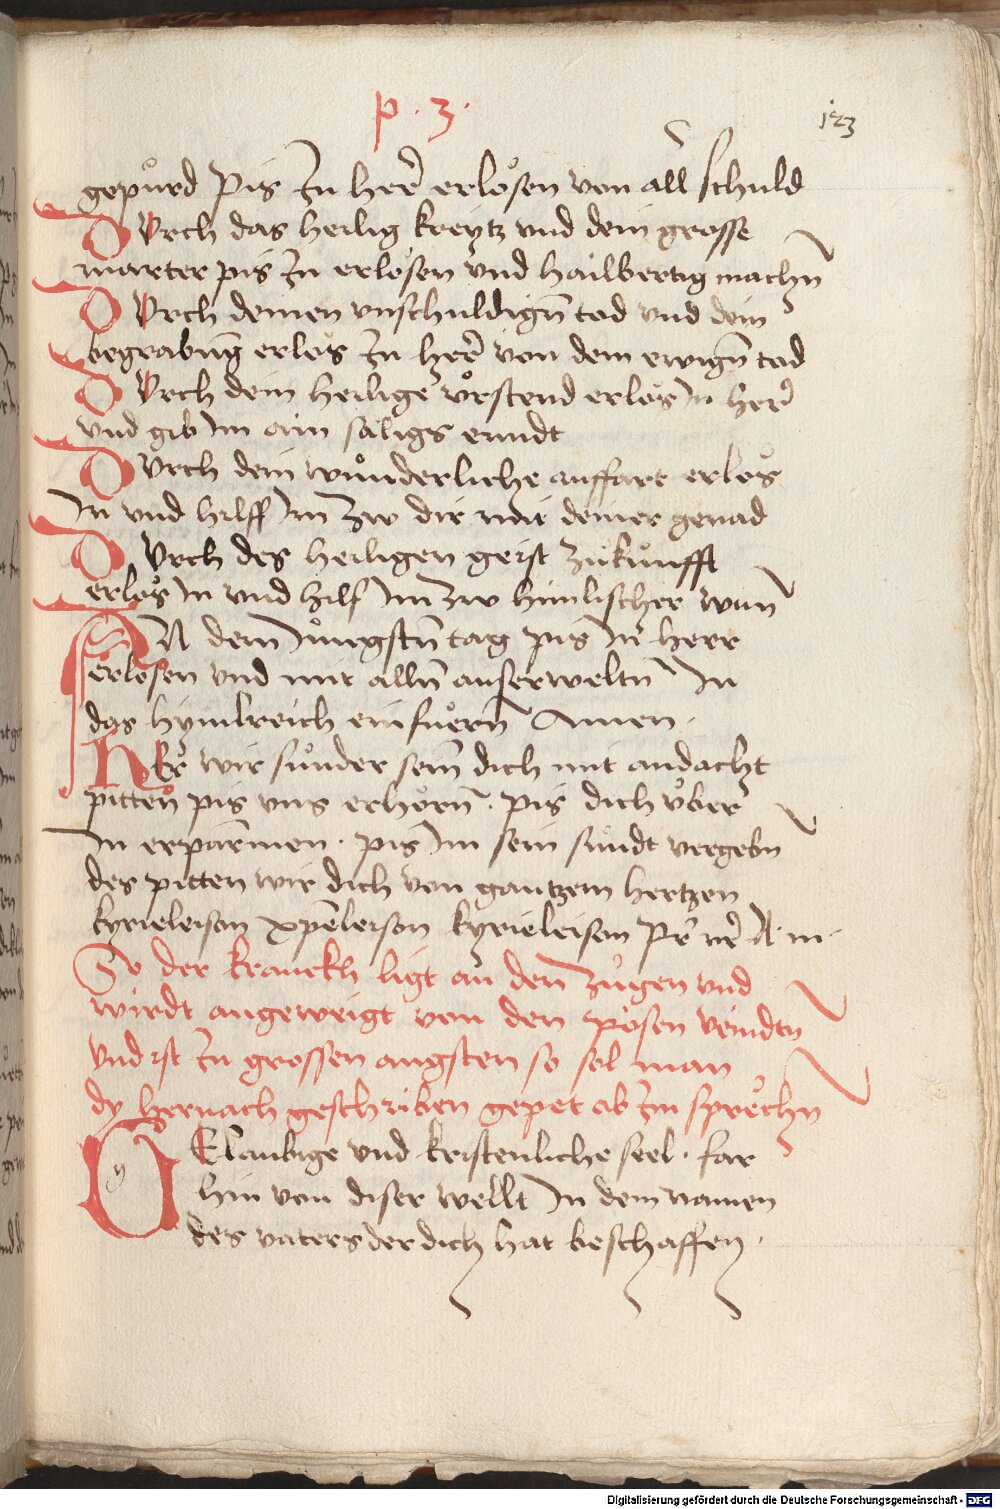 p · 3 ·
123
gepůrd Pis In herr̄ erlősen von all schuld
DUrch das heilig kreytz vnd dein grosse
marter pis In erlősen vnd hailbertig machn̄
DUrch deinen vnschuldign̄ tod vnd dein
begrabūg erlős In herr̄ von dem ewign̄ tod
DUrch dein heilige vrstend erlős In herr̄
vnd gib Im ain säligs enndt
DUrch dein wůnderliche auffart erlős
In vnd hilff Im zw dir mit deiner genad
DUrch des heiligen geist zůkůnfft
erlős In vnd hilf Im zw himlischer wun̄
AN dem Jůngstn̄ tag pis In herr
erlősen vnd mit alln̄ auserweltn̄ In
das hymlreich einfuern̄ Amen ·
HEr wir sůnder sein dich mit andacht
pitten pis vns erhőrn̄ · pis dich vber
In erparmen · pis Im sein sündt vergebn
des pitten wir dich von gantzem hertzen
kyrieleison xp̄eleison kyrieleison Pr̄ nr̄ A · m ·
So der kranckh ligt an den zůgen vnd
wirdt angeweigt von den pősen veindtn̄
vnd ist In grossen angsten so sol man
dy hernach geschriben gepet ob Im sprechn̄
g
GElaubige vnd kristenliche seel · far
hin von diser wellt In dem namen
des vaters der dich hat beschaffen ·
Digitalisierung gefördert durch die Deutsche Forschungsgemeinschaft - DFG